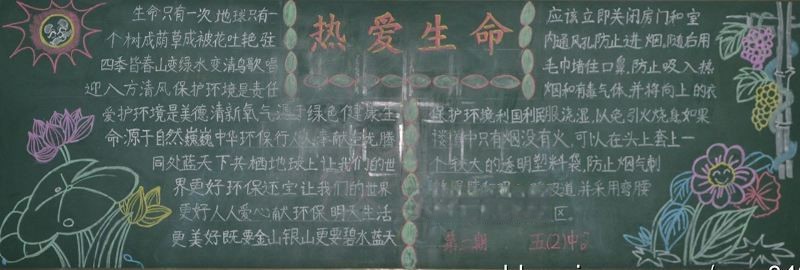 热爱生命
生命只有一次地球只有一
个树成荫草成被花吐艳驻
四季皆春山变绿水变清鸟歌唱
迎入方清风保护环境是责任
爱护环境是美德清新氧气源于绿色健康生
命源于自然巍巍中华环保行
同处蓝天下共栖地球上让我们的世
界更好环保还宝让我们的世界
更好人人爱心献环保明天生活
更美好既要金山银山更要碧水蓝天
应该立即关闭房门和室
内通风孔防止进烟,随后用
毛巾堵住口鼻,防止吸入热
烟和有毒气体,并将向上的衣
保护环境利国利民服浇湿,以免引火烧身如果
楼道中只有烟没有火,可以在头上套上一
个较大的透明塑料袋,防止烟气刺
道,并采用弯腰
区。
第二期 五(2)中